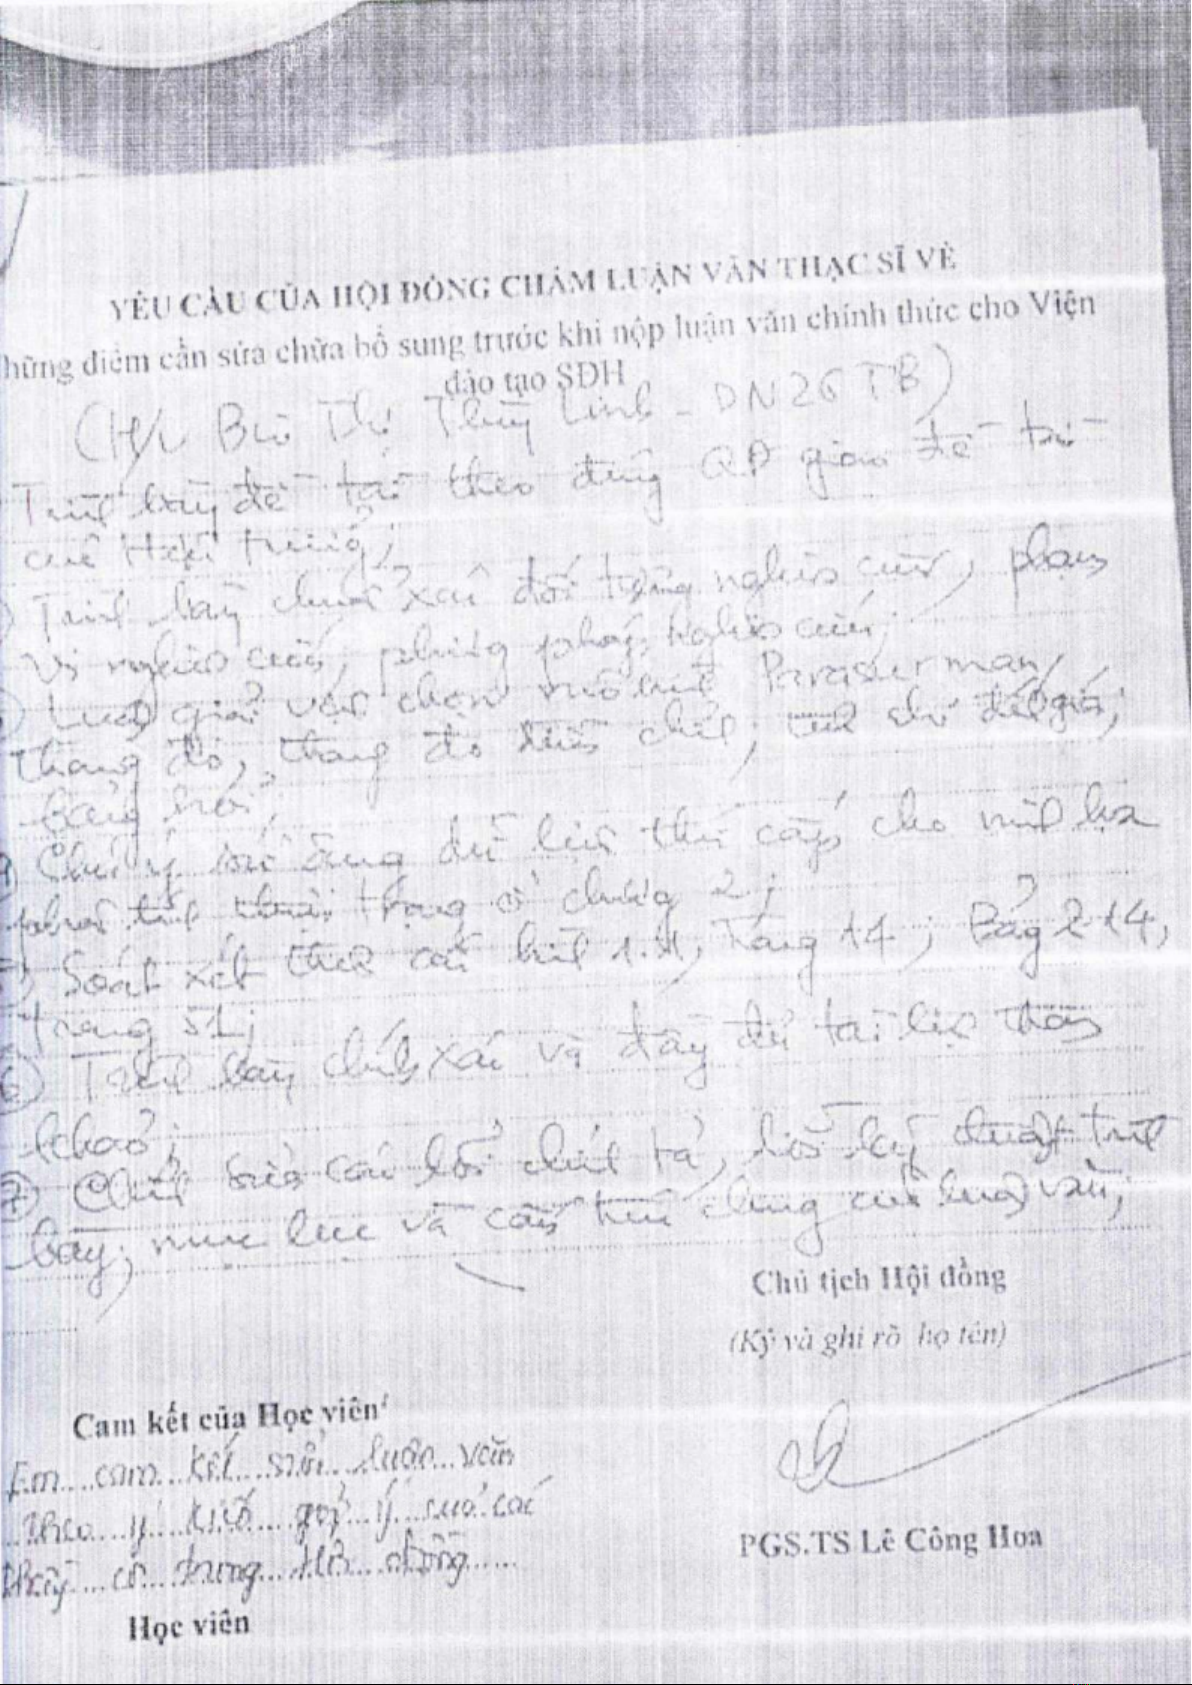 YÊU CẦU CỦA HỘI ĐỒNG CHẤM LUẬN VĂN THẠC SĨ VỀ
hững điểm cần sửa chữa bổ sung trước khi nộp luận văn chính thức cho Viện
đào tạo SĐH
(H/v Bùi Thị Thùy Linh - DN26TB)
Trình bày đề tài theo đúng QĐ giao đề tài
của trường;
Trình bày chính xác đối tượng nghiên cứu, phạm
vi nghiên cứu, phương pháp nghiên cứu;
Luận giải việc chọn mô hình Parasurman,
thang đo, thang đo điều chỉnh, đánh giá,
bảng hỏi;
Chú ý sử dụng dữ liệu thứ cấp cho
phân tích thực trạng ở chương 2;
Soát xét hình 1.1, trang 14; Bảng 2.14,
trang 51;
6 Trình bày chính xác và đầy đủ tài liệu tham
khảo;
7 Chỉnh sửa các lỗi chính tả, lỗi kỹ thuật trình
bày, mục lục và cấu trúc chung của luận văn;
Chủ tịch Hội đồng
(Ký và ghi rõ họ tên)
Cam kết của Học viên
Em cam kết sửa luận văn
theo ý kiến góp ý của các
thầy cô trong Hội đồng
PGS.TS Lê Công Hoa
Học viên